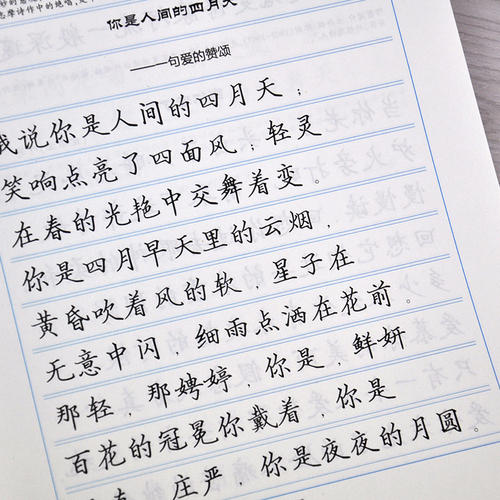 志摩诗作中的绝唱，是
你是人间的四月天
———一句爱的赞颂
我说你是人间的四月天；
笑响点亮了四面风；轻灵
在春的光艳中交舞着变。
你是四月早天里的云烟，
黄昏吹着风的软，星子在
无意中闪，细雨点洒在花前。
那轻，那娉婷，你是，鲜妍
百花的冠冕你戴着，你是
庄严，你是夜夜的月圆。